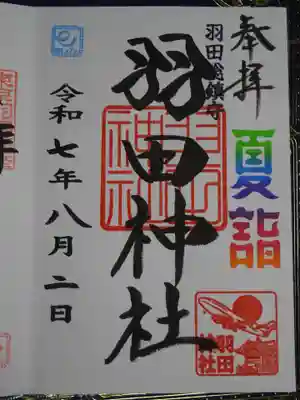 奉拝
夏詣
羽田総鎮守
羽田神社
羽田神社
羽田神社
令和七年八月二日